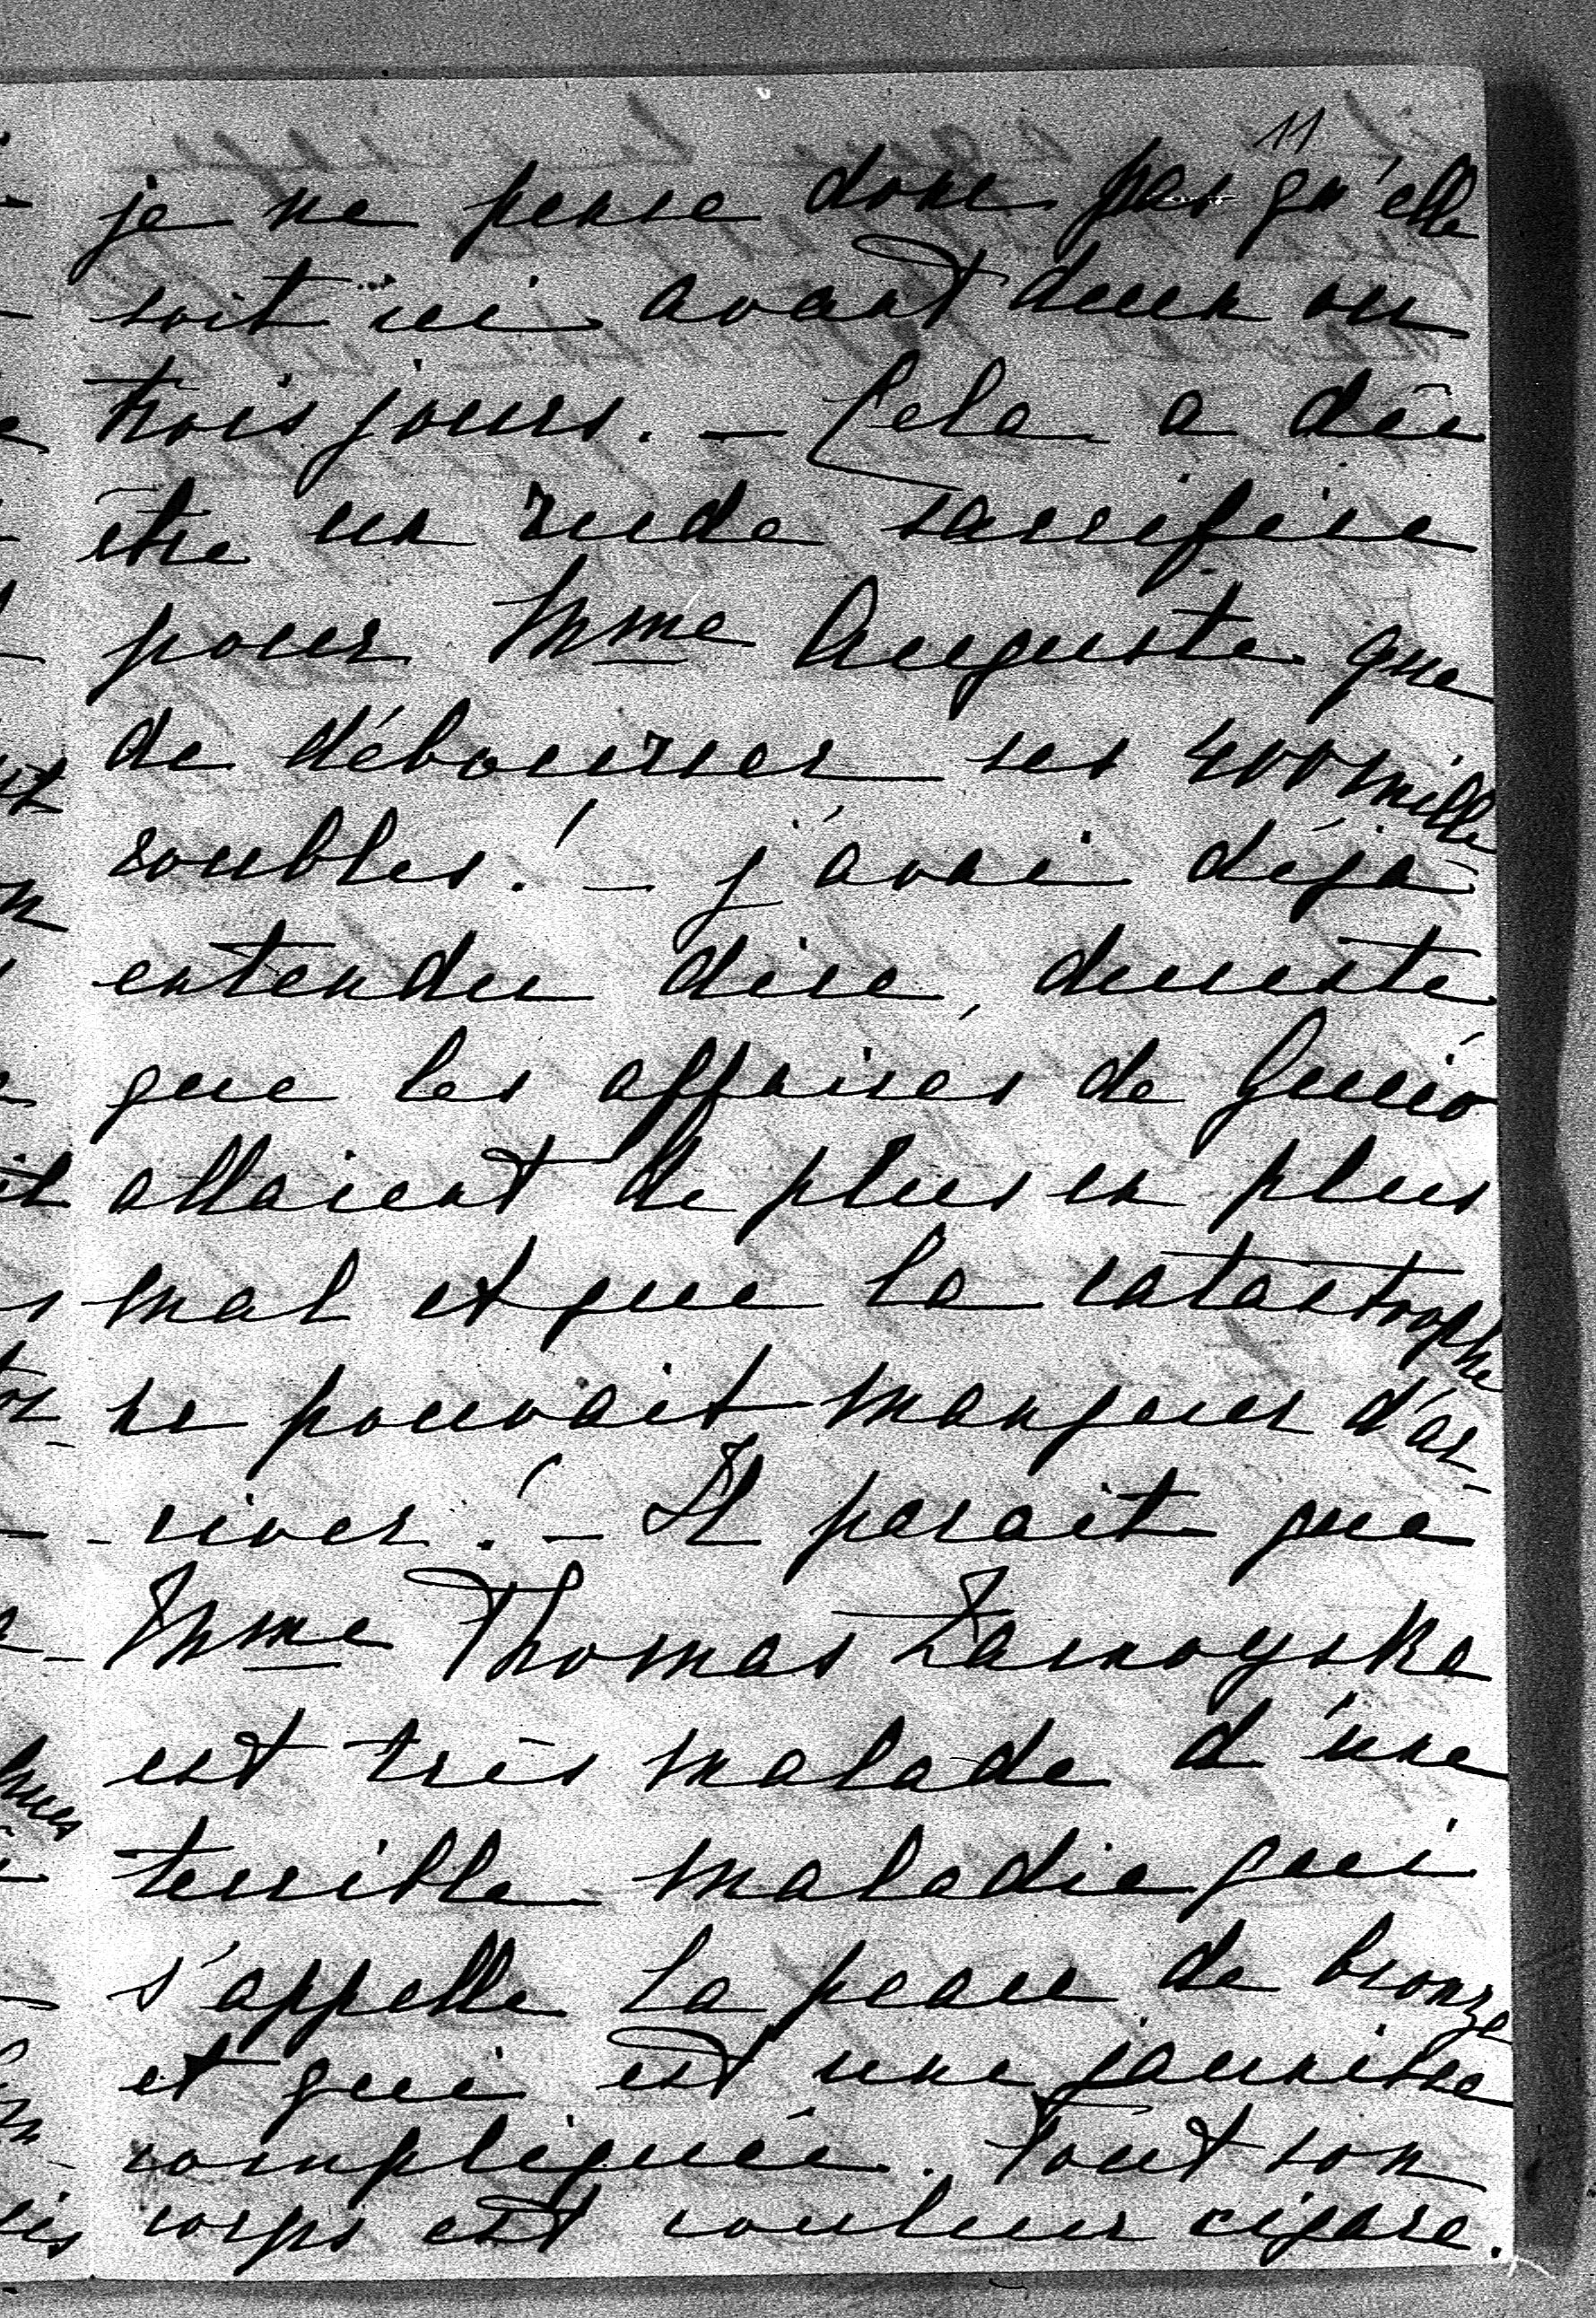 11
je ne pense donc pas qu'elle
soit ici avant deux ou
trois jours. – Cela a dû
être un rude sacrifice
pour Mme Auguste que
de débourser ses 400 mille
roubles! – j'avai déjà
entendu dire, dureste
que les affaires de Gucio
allaient de plus en plus
mal et que la catastrophe
ne pouvait manquer d'ar-
river! – Il parait que
Mme Thomas Zamoyska
est très malade d'une
terrible maladie qui
s'appelle la peau de bronze
et qui est une jaunisse
compliquée. Tout son
corps est couleur cigare.